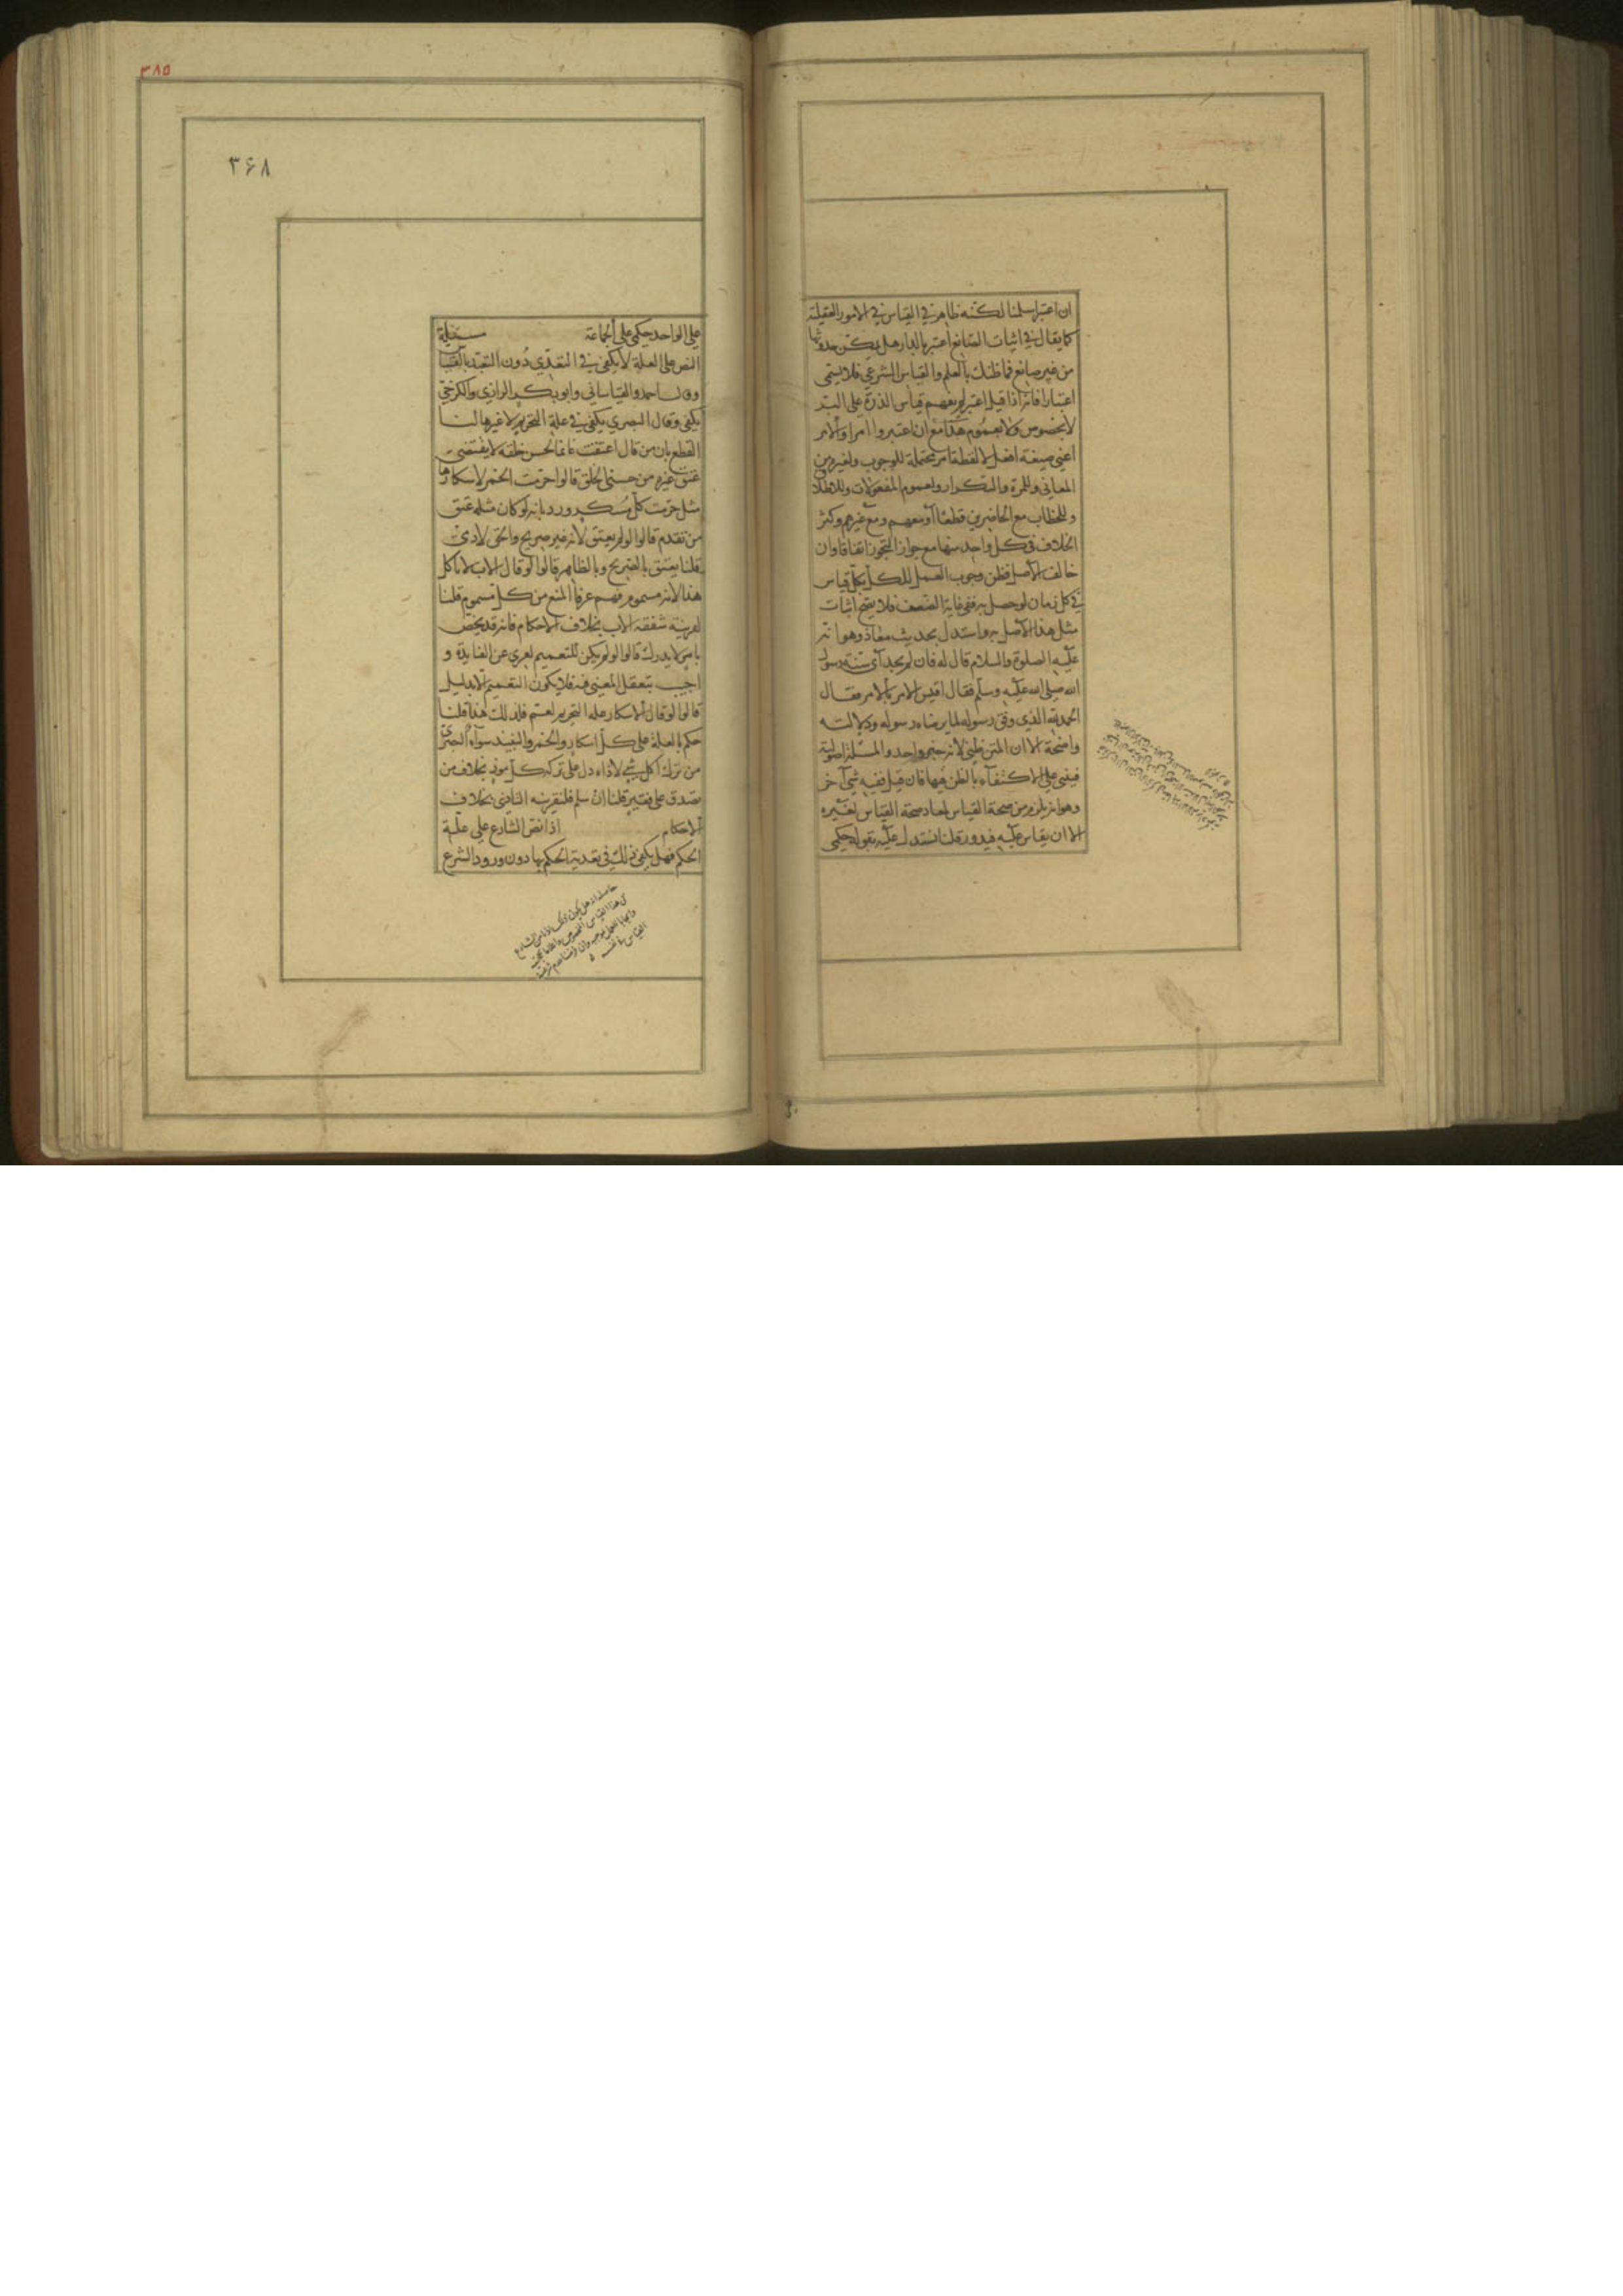 ان اعتبر سلمنا لكنه ظاهر في القياس في الامور العقلية
كما يقال في اثبات الصانع اعتبر بالدار هل يمكن حدوثها
من غير صانع فما ظنك بالعلم والقياس الشرعي فلا يسمى
اعتبارا فانه اذا قيل اعتبر لم يفهم قياس الذرة على البر
لا بخصوص ولا بعموم هذا مع ان اعتبروا امر او الامر
اعني صيغة افعل لا لفظة امر محتملة للوجوب ولغيره من
المعاني وللمرة والتكرار ولعموم المفعولات وللاطلاق
وللخطاب مع الحاضرين قطعا او معهم ومع غيرهم وكثر
الخلاف في كل واحد منها مع جواز التجوز اتفاقا وان
خالف الاصل فظن وجوب العمل للكل بكل قياس
في كل زمان لو حصل به ففي غاية الضعف فلا يصح اثبات
مثل هذا الاصل به واستدل بحديث معاذ وهو انه
عليه الصلوة والسلام قال له فان لم يجد اي سنة رسول
الله صلى الله عليه وسلم فقال اقيس الامر بالامر فقال
الحمد لله الذي وفق رسوله لما يرضاه رسوله ودلالته
واضحة الا ان المتن ظني لانه خبر واحد والمسئلة اصولية
فيبنى على الاكتفاء بالظن فيها فان قيل ففيه شئ آخر
وهو انه يلزم من صحة القياس لمعاذ صحة القياس لغيره
الا ان يقاس عليه فيدور قلنا نستدل عليه بقوله حكمي
٣٨٥
٣۶٨
على الواحد حكمي على الجماعة مسئلة
النص على العلة لا يكفي في التعدي دون التعبد بالقياس
وقال احمد والقاساني وابو بكر الرازي والكرخي
يكفي وقال البصري يكفي في علة التحريم لا غيرها لنا
القطع بان من قال اعتقت غانما لحسن خلقه لا يقتضي
عتق غيره من حسني الخلق قالوا حرمت الخمر لاسكارها
مثل حرمت كل مسكر ورد بانه لو كان مثله عتق
من تقدم قالوا لو لم يعتق لانه غير صريح والحق لادمي
قلنا يعتق بالصريح وبالظاهر قالوا لو قال الاب لا تاكل
هذا لانه مسموم فهم عرفا المنع من كل مسموم قلنا
لقرينة شفقة الاب بخلاف الاحكام فانه قد يخص
بامر لا يدرك قالوا لو لم يكن للتعميم لعري عن الفايدة و
اجيب بتعقل المعنى فيه فلا يكون التعميم الا بدليل
قالوا لو قال الاسكار علة التحريم لعم فكذلك هذا قلنا
حكم بالعلة على كل اسكار والخمر والنبيذ سواء البصري
من ترك اكل شئ لاذاه دل على تركه كل موذ بخلاف من
تصدق على فقير قلنا ان سلم فلقرينة التاذي بخلاف
الاحكام اذا نص الشارع على علة
الحكم فهل يكفي ذلك في تعدية الحكم بها دون ورود الشرع